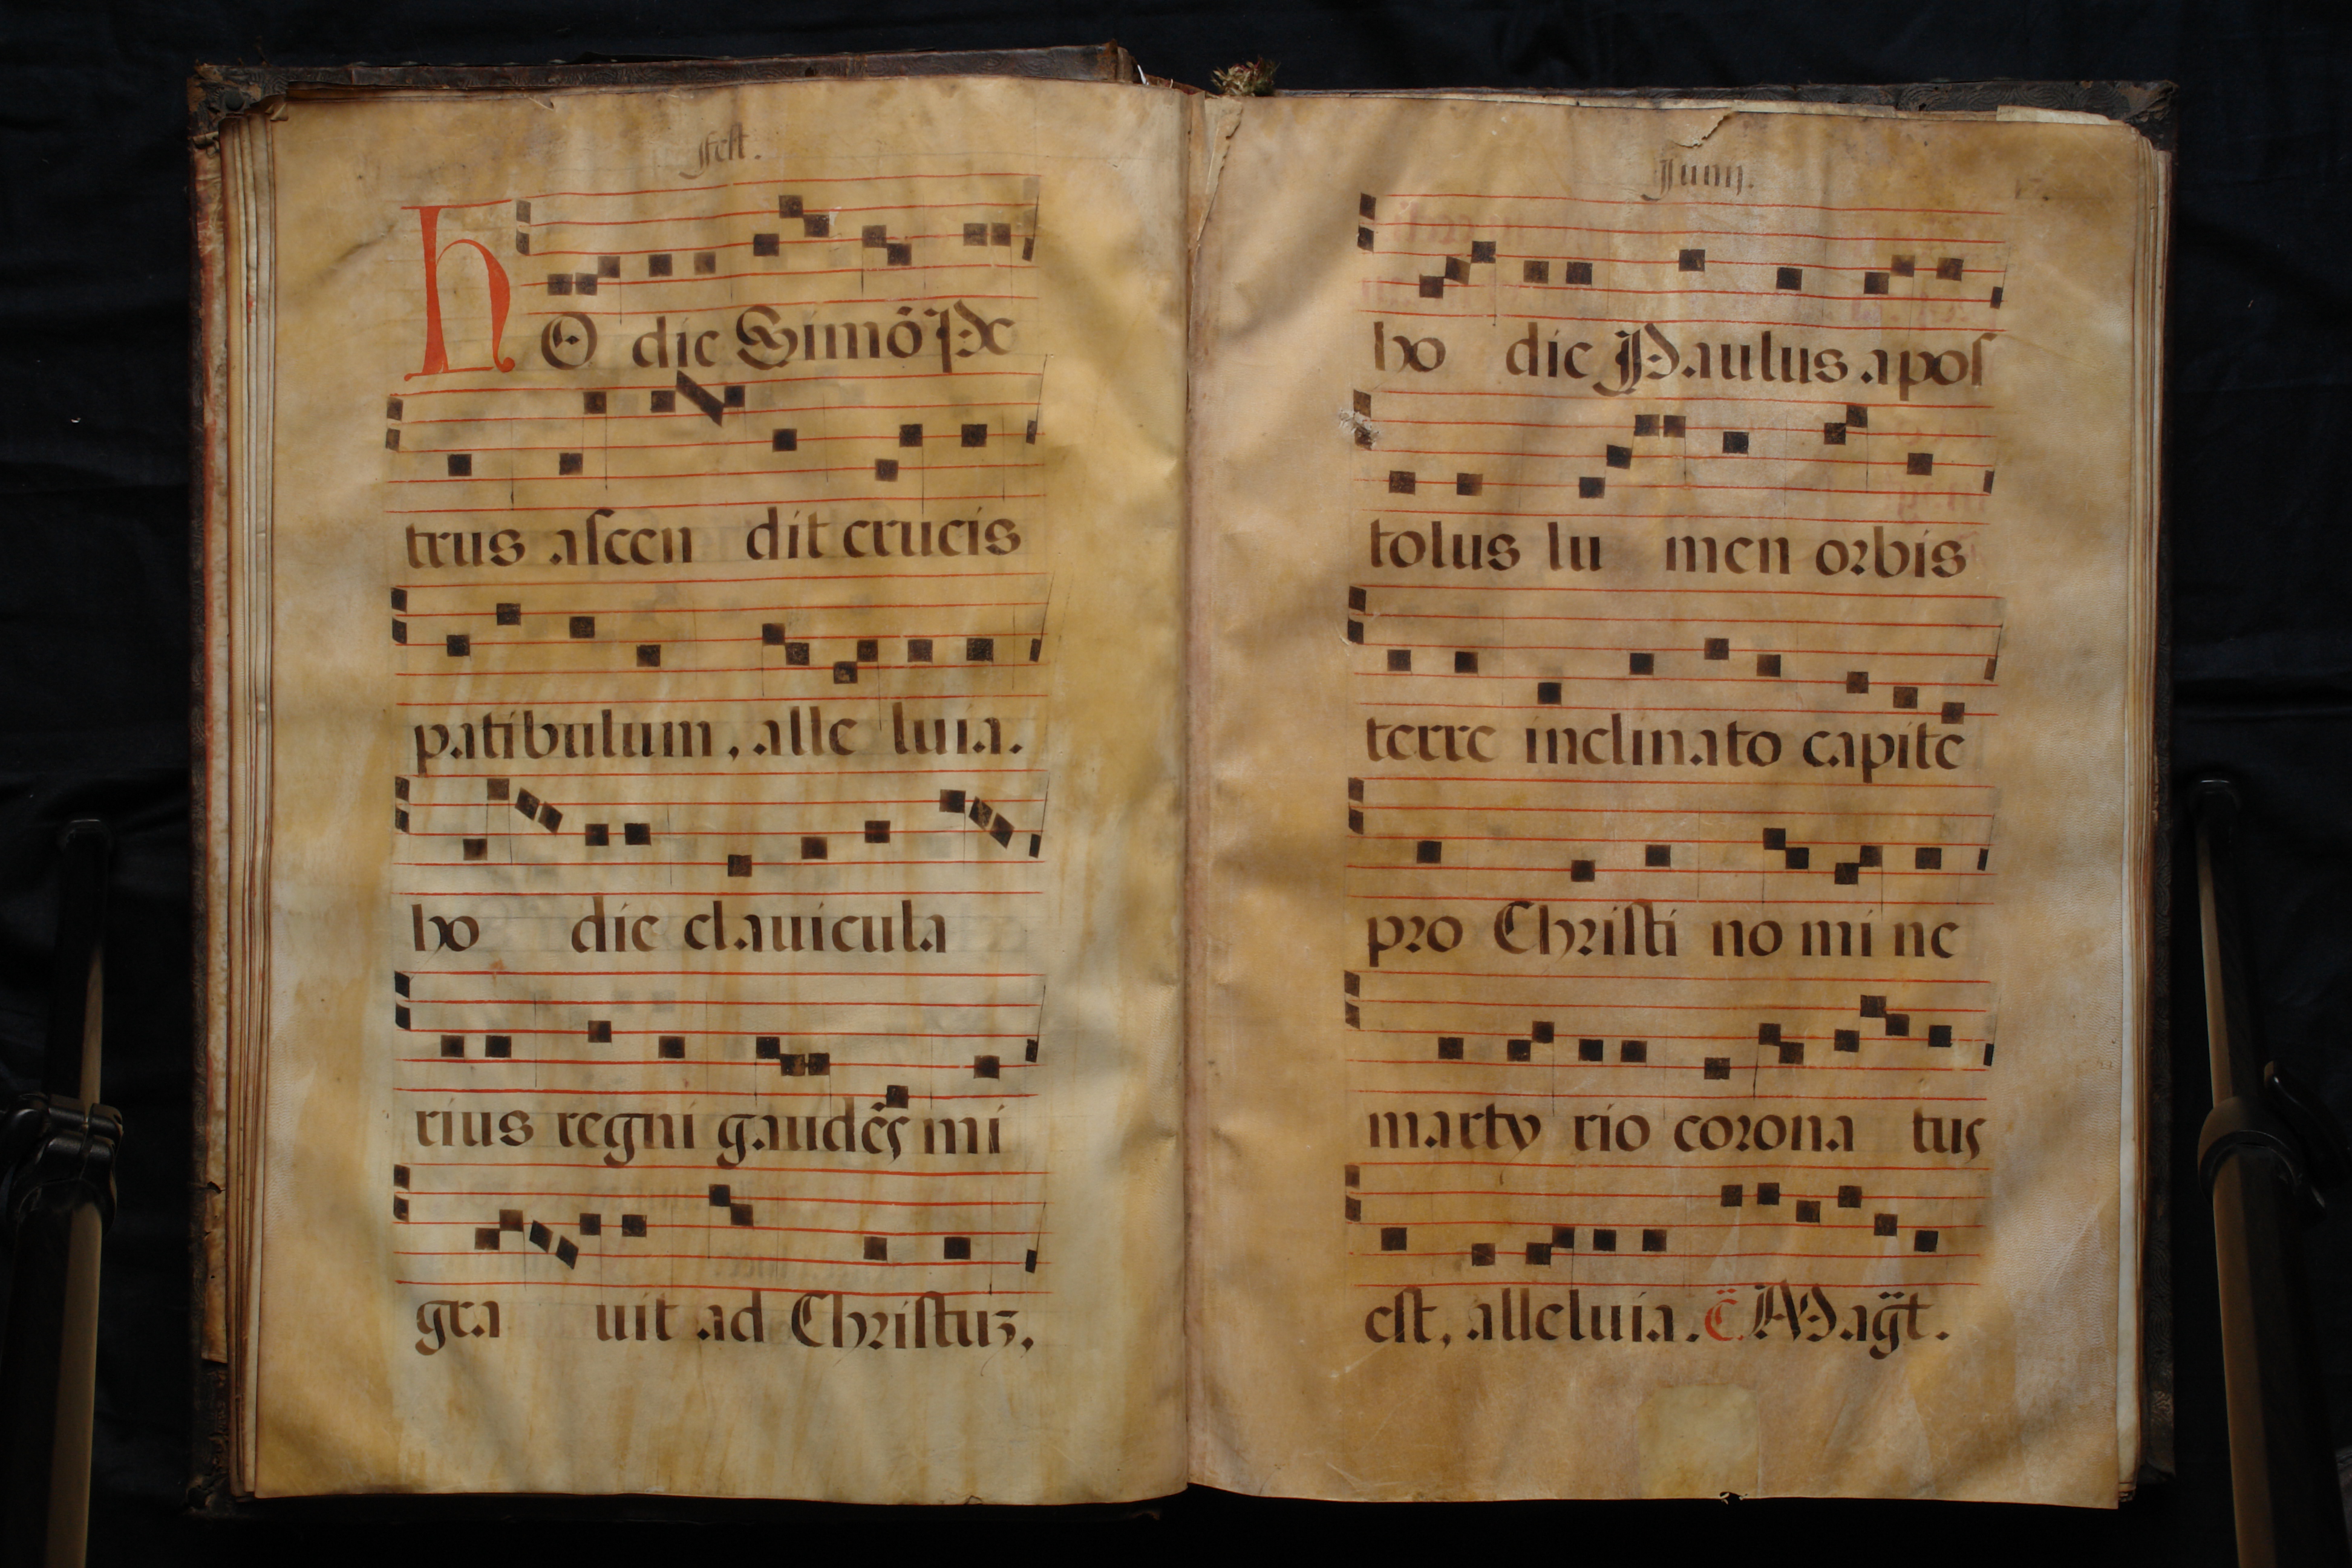 fest.
HO die Simō Pe
trus ascen dit crucis
patibulum, alle luia.
ho die clauicula
rius regni gaudēs mi
gra uit ad Christuȝ.
Junij.
ho die Paulus apos
tolus lu men orbis
terre inclinato capite
pro Christi no mi ne
marty rio corona tus
est, alleluia. C̄. Mag̃t.